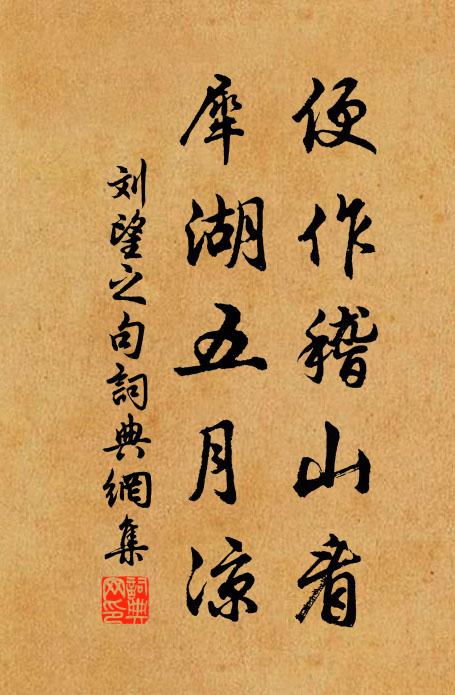 便作稽山看
犀湖五月凉
刘望之句詞典網集
詞典网印